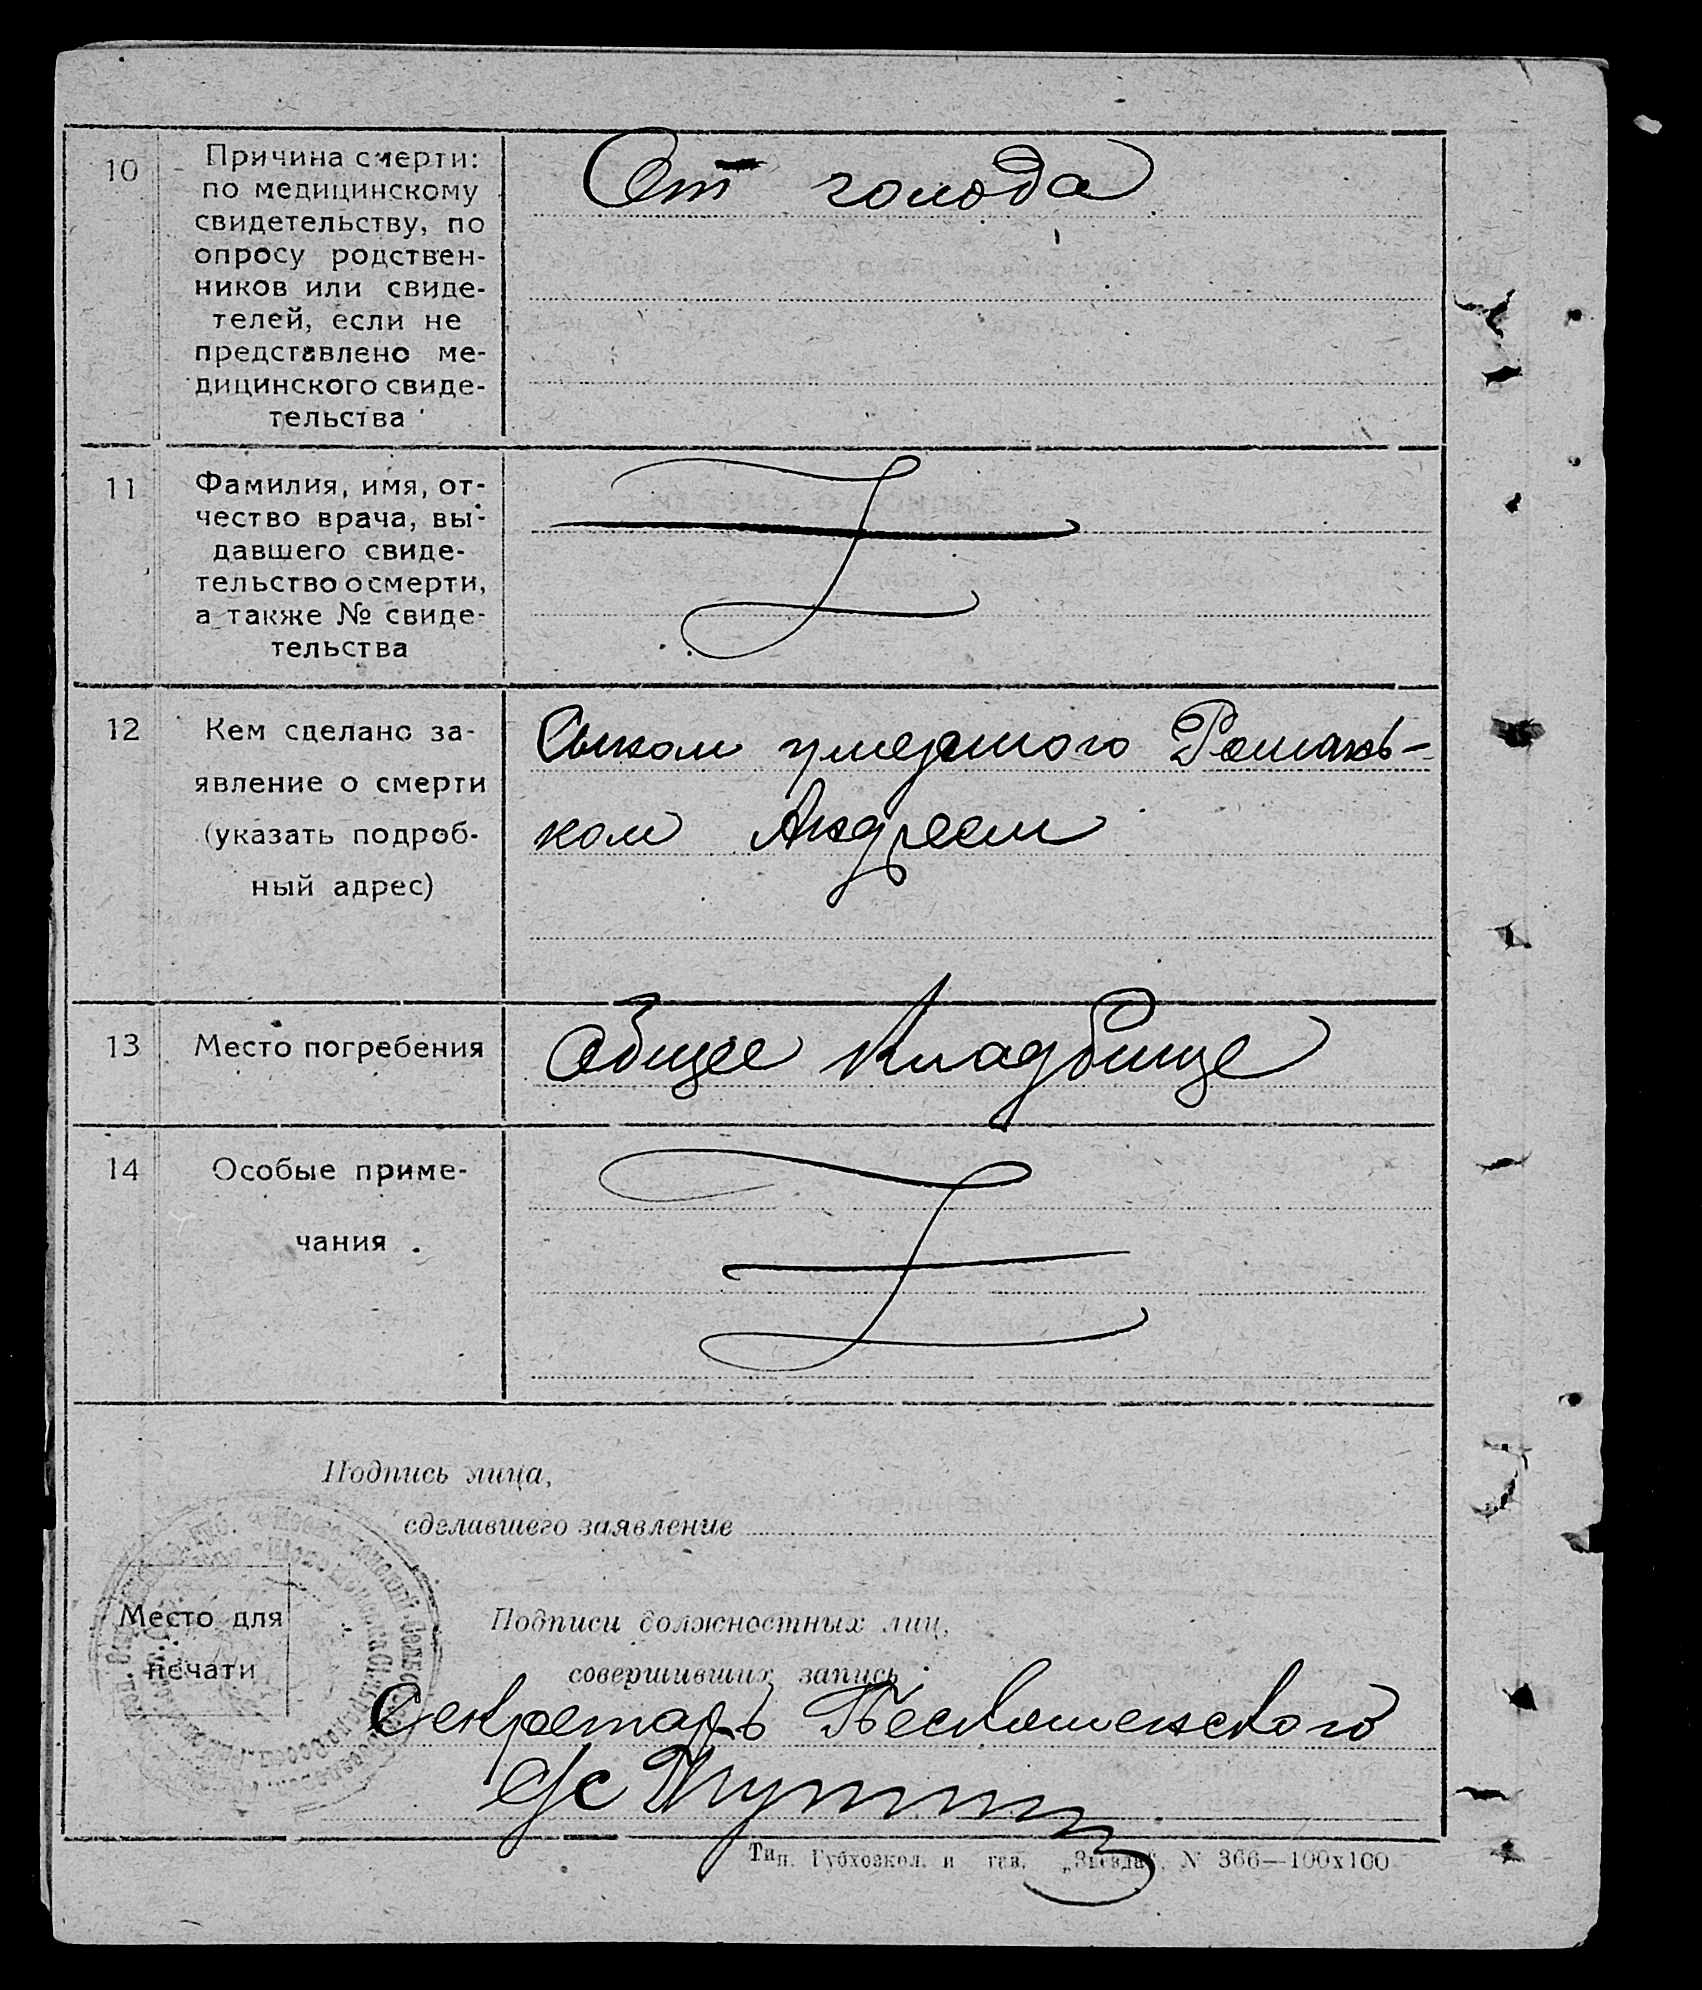 10
Причина смерти:
по медицинскому
свидетельству, по
опросу родствен-
ников или свиде-
телей, если не
представлено ме-
дицинского свиде-
тельства
От голода
11
Фамилия, имя, от-
чество врача, вы-
давшего свиде-
тельство о смерти,
а также № свиде-
тельства
12
Кем сделано за-
явление о смерти
(указать подроб-
ный адрес)
Сыном умершого Романь-
ком Андреем
13
Место погребения
Общее кладбище
14
Особые приме-
чания
Подпись лица,
сделавшего заявление
Место для
печати
Подписи должностных лиц,
совершивших запись
Секретарь
с/с
Тип. Губхозкол. и газ. „Звезда", N 366—100х100